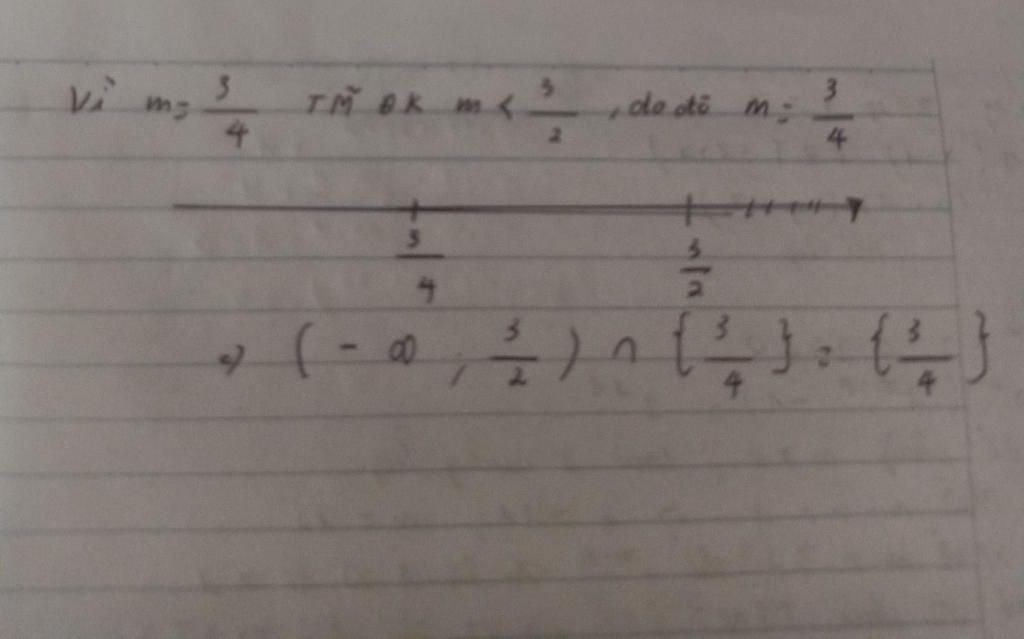 Vì m = 3/4 TM ĐK m < 3/2, do đó m = 3/4
3/4 3/2
=> (-∞, 3/2) ∩ {3/4} = {3/4}